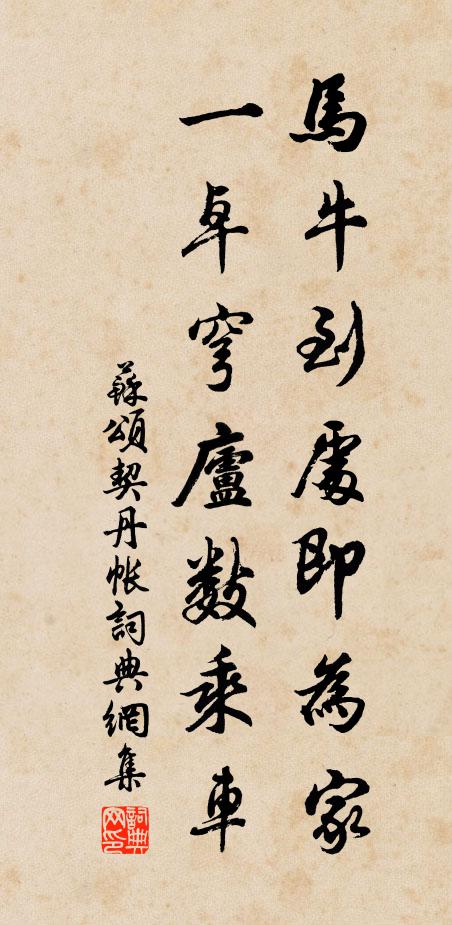 馬牛到處即為家
一卓穹廬數乘車
蘇頌契丹帳詞典網集
詞典網印